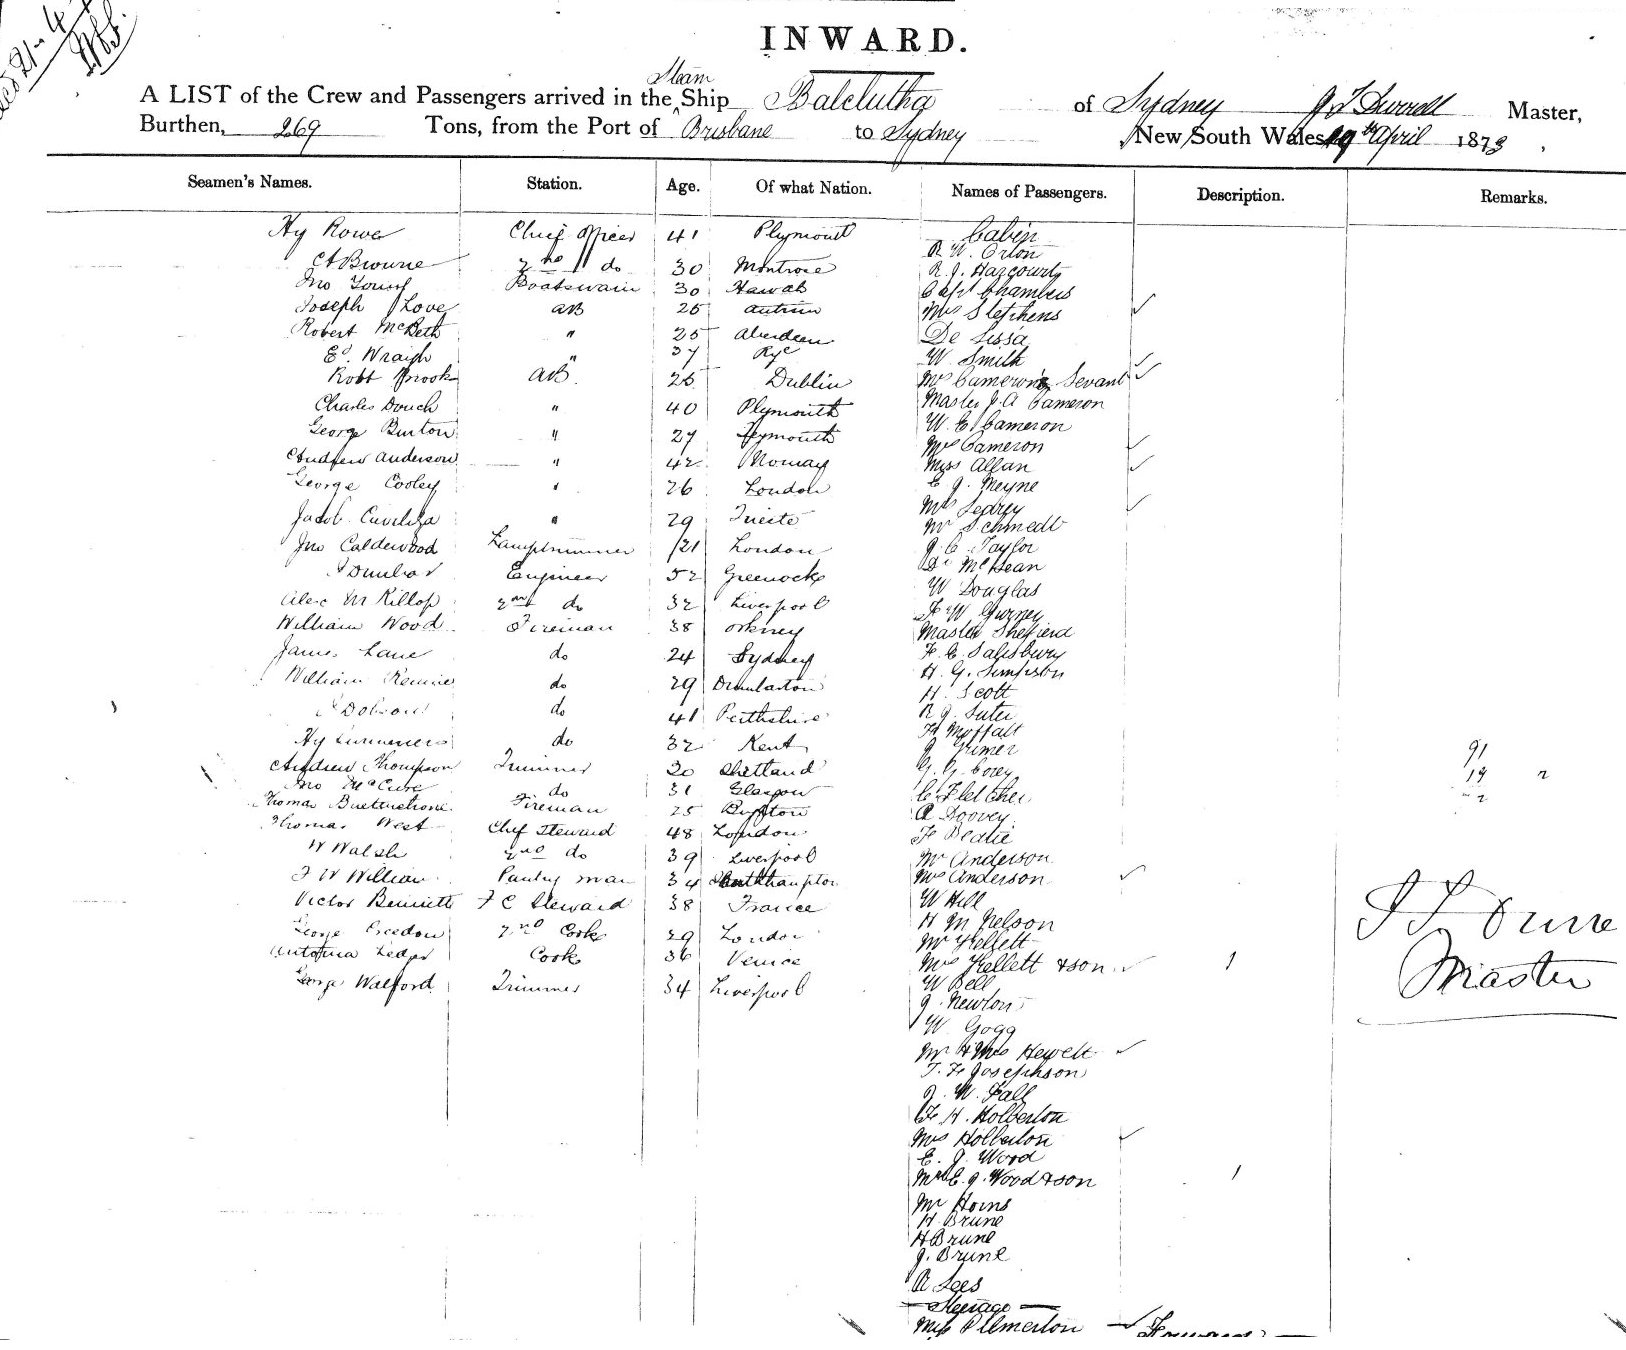 INWARD.
Steam
A LIST of the Crew and Passengers arrived in the Ship Balclutha of Sydney Master,
Burthen, 269 Tons, from the Port of Brisbane to Sydney New South Wales 19th April 1873
Seamen's Names. Station. Age. Of what Nation. Names of Passengers. Description. Remarks.
Hy Rowe Chief Officer 41 Plymouth
A Browne 2nd do 30 Montrose
Jno Young Boatswain 30
Joseph Love AB 25 Antrim
Robert McBeth " 25 Aberdeen
Ed. Wraigh " 37 Rye
Robt Brook AB. 25 Dublin
Charles Douch " 40 Plymouth
George Burton " 27
Andrew Anderson " 42 Norway
George Cooley " 26 London
Jacob " 29 Trieste
Jno Calderwood Lamptrimmer 21 London
Dunbar Engineer 52 Greenock
Alex McKillop 2nd do 32 Liverpool
William Wood Fireman 38 Orkney
James Lane do 24 Sydney
William Rennie do 29 Dumbarton
Dobson do 41 Perthshire
Hy Summers do 32 Kent
Andrew Thompson Trimmer 30 Shetland
Jno McClure do 31 Glasgow
Thomas Fireman 25
Thomas West Chief Steward 48 London
W Walsh 2nd do 39 Liverpool
Pantry man 34 Southampton
Victor Bennett F C Steward 38 France
George 2nd Cook 29 London
Cook 36 Venice
George Walford Trimmer 34 Liverpool
Cabin
R W. Orton
R. J. Harcourt
Capt Chambers
Mrs Stephens
De Lissa
W. Smith
Mrs Cameron's Sevant
Master J. A Cameron
W. E. Cameron
Mrs Cameron
Miss Allan
E J. Meyne
Mrs
Mr Schmedt
J. C. Taylor
Dr McLean
W Douglas
F W Gurney
Master
F. C. Salisbury
H. G. Simpson
H. Scott
R J. Suter
H Moffatt
G. G. Corey
C Fletcher
A Doovey
F Beatie
Mr Anderson
Mrs Anderson
W Hill
H M Nelson
Mr Kellett
Mrs Kellett & son 1
W Bell
J. Newton
W. Gogg
Mr & Mrs Hewett
J. F Josephson
J. W. Fall
F. H. Holberton
Mrs Holberton
E. J. Wood
Mrs E. J. Wood & son 1
Mr Horns
H Brune
H Brune
J. Brune
A Lees
Steerage
Miss Plemerton
Forward
91
19
2
Master